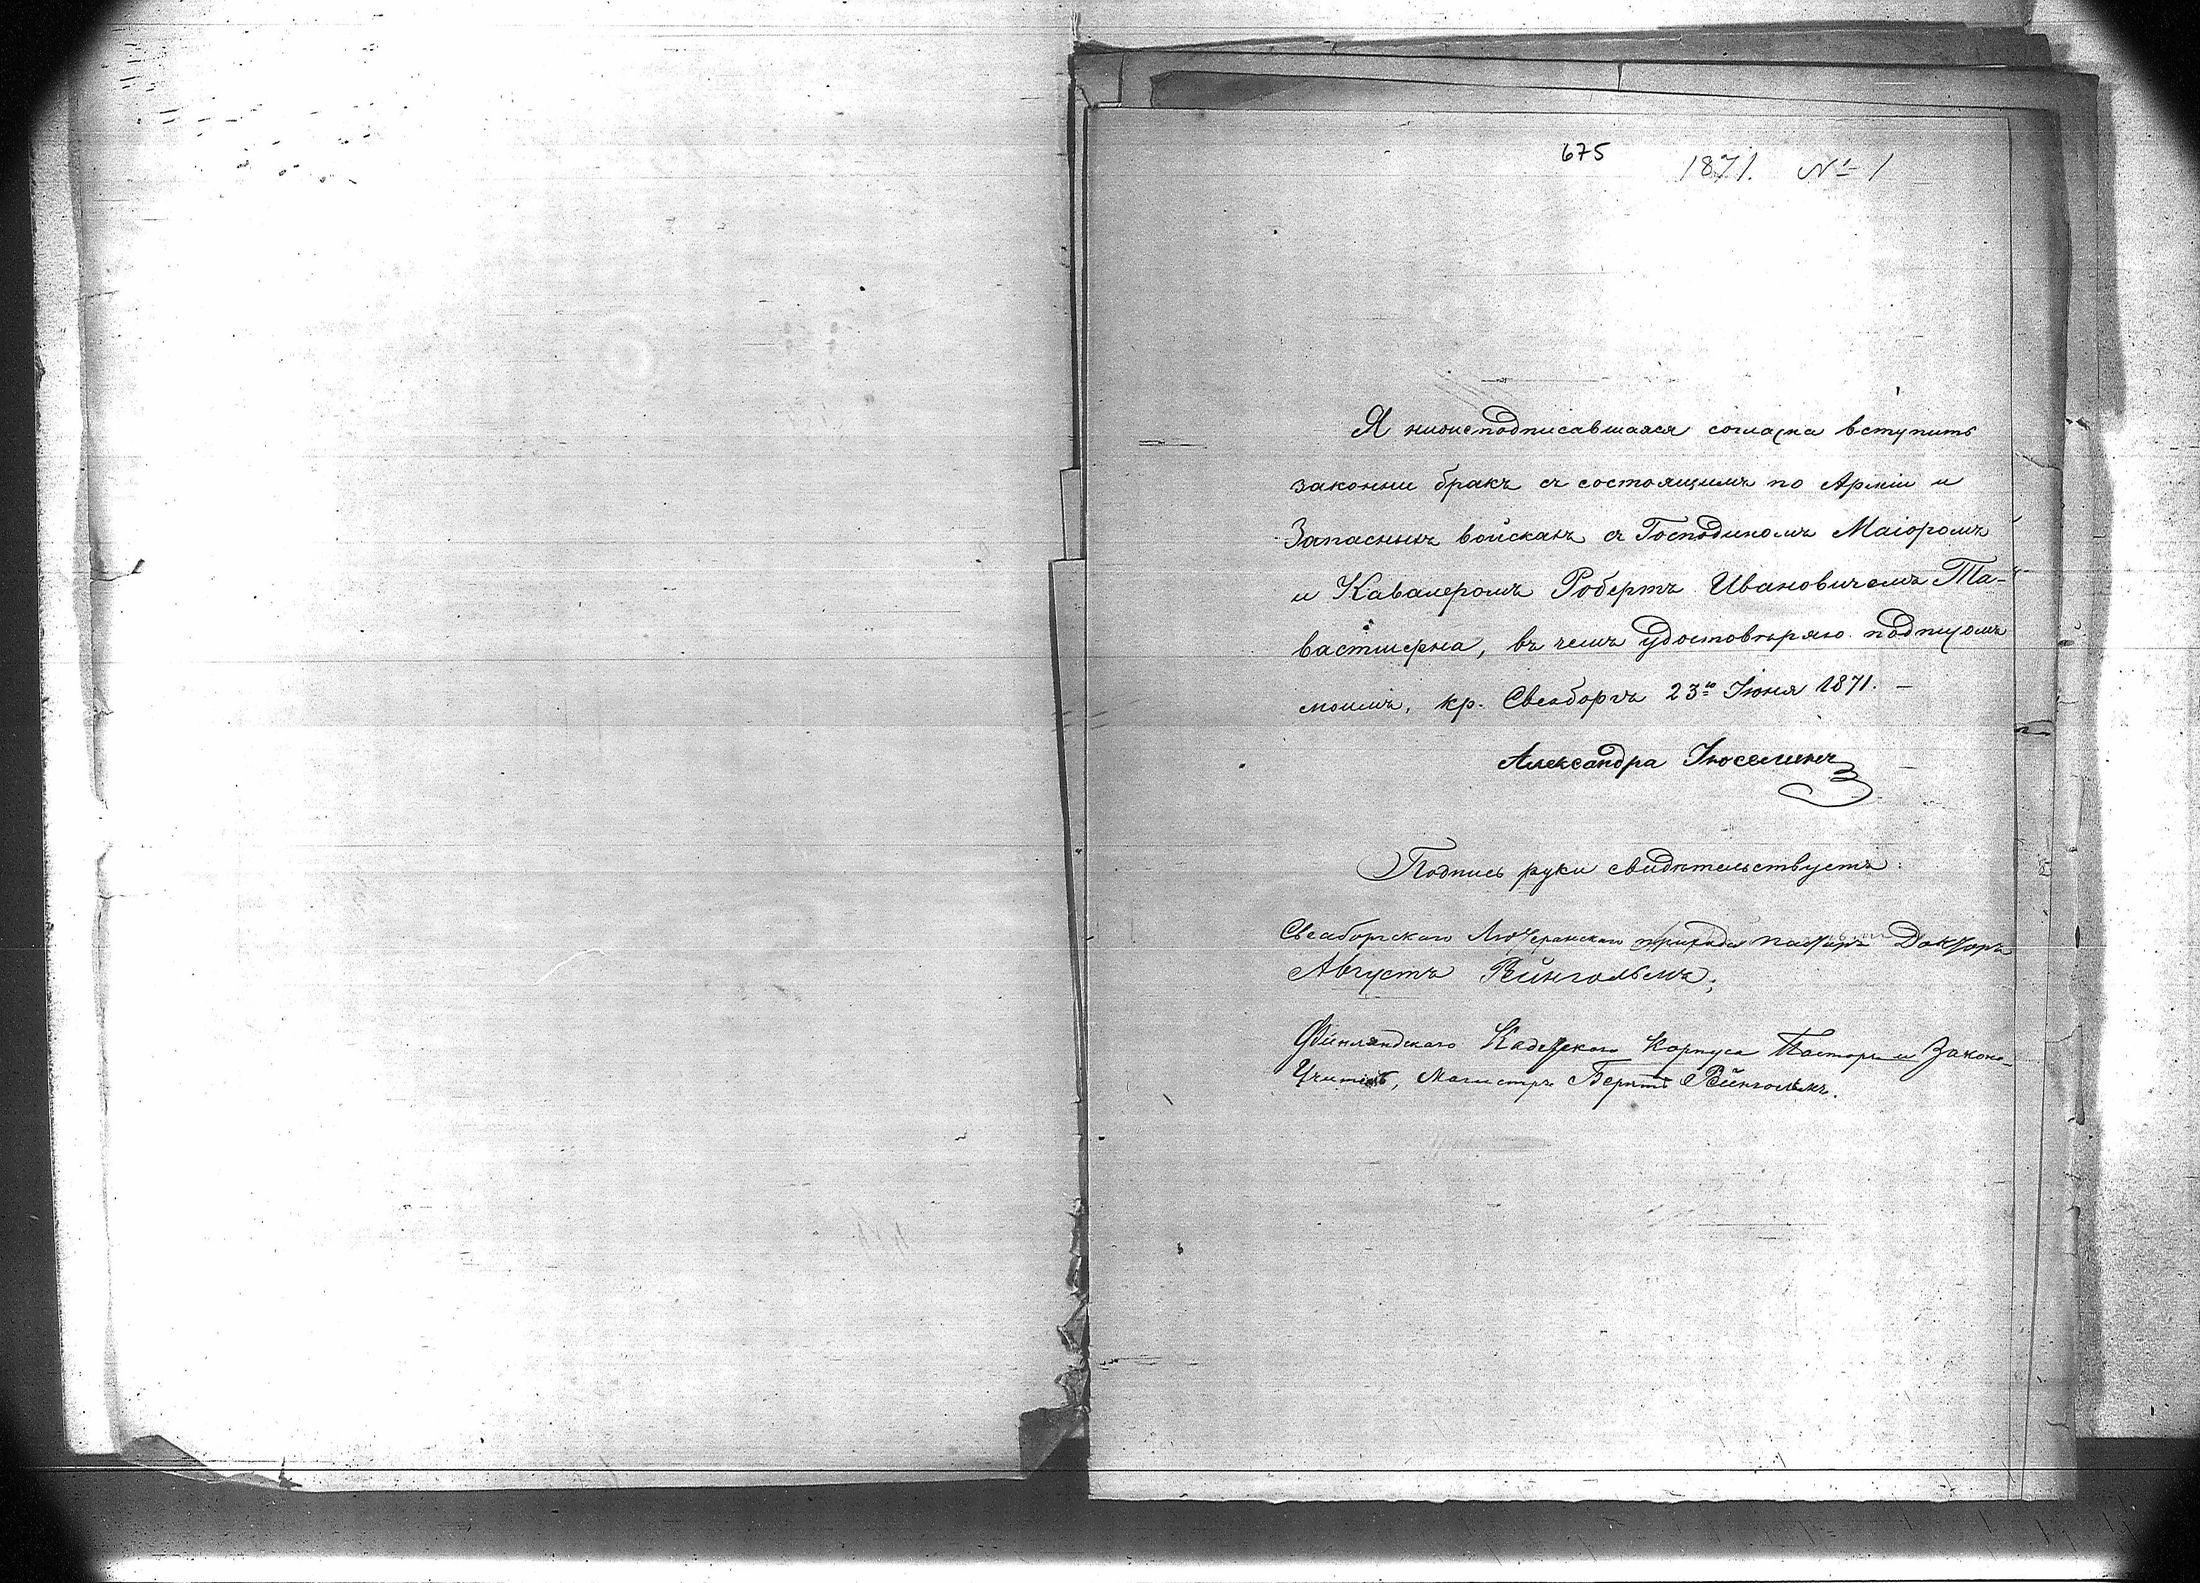 675
1871. № 1
Я нижеподписавшаяся согласна вступить
законни бракъ съ состоящимъ по Арміи и
Запаснымъ войскамъ съ Господиномъ Маіоромъ
и Кавалеромъ Робертъ Ивановичемъ Та-
вастшерна, въ чемъ удостовѣряю подписомъ
моимъ. кр. Свеаборгъ 23го Іюня 1871. —
Александра Іюселинъ
Подпись руки свидѣтельствуетъ:
Свеаборгскаго Лютеранскаго прихода пасторъ Докторъ
Августъ Рейнгольмъ;
Финляндскаго Кадетскаго Корпуса Пасторъ и Законо-
Учитель, Магистръ Бернтъ Рейнгольмъ.